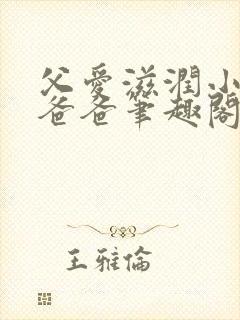 父愛滋潤小
爸爸筆趣閣
王雅倫